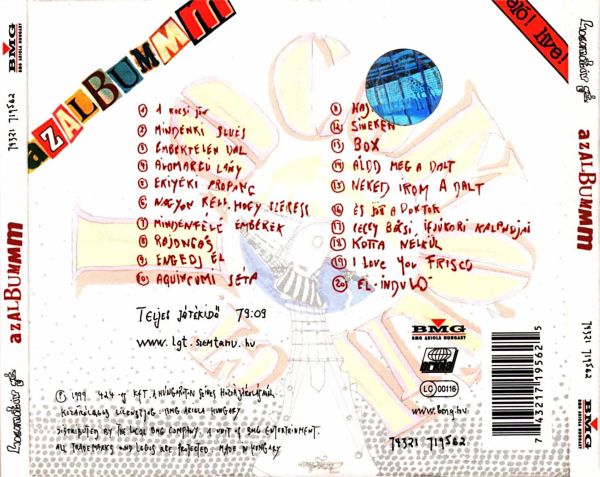 azALBUMmm
1 A KOCSI JÖN
2 MINDENKI BLUES
3 EMBERTELEN DAL
4 ÁLOMARCÚ LÁNY
5
6 NAGYON KELL, HOGY SZERESS
7 MINDENFÉLE EMBEREK
8 RAJONGÁS
9 ENGEDJ EL
10 AQUINCUMI SÉTA
SÍNEKEN
13 BOX
14 ÁLDD MEG A DALT
15 NEKED ÍROM A DALT
16 ÉS JÖN A DOKTOR
17 BÁCSI, IFJÚKORI KALANDJAI
18 KOTTA NÉLKÜL
19 I LOVE YOU FRISCO
20 EL-INDULÓ
TELJES JÁTÉKIDŐ 79:09
www.lgt.szemtanu.hu
KIZÁRÓLAGOS LICENSZJOG BMG ARIOLA HUNGARY
DISTRIBUTED BY THE LOCAL BMG COMPANY, A UNIT OF BMG ENTERTAINMENT.
ALL TRADEMARKS AND LOGOS ARE PROTECTED. MADE IN HUNGARY
BMG
BMG ARIOLA HUNGARY
ariola
LC 00116
www.bmg.hu
74321 719562
7 43217 19562 5
BMG
BMG ARIOLA HUNGARY
74321 719562
azALBUMmm
azALBUMmm
74321 719562
BMG
BMG ARIOLA HUNGARY